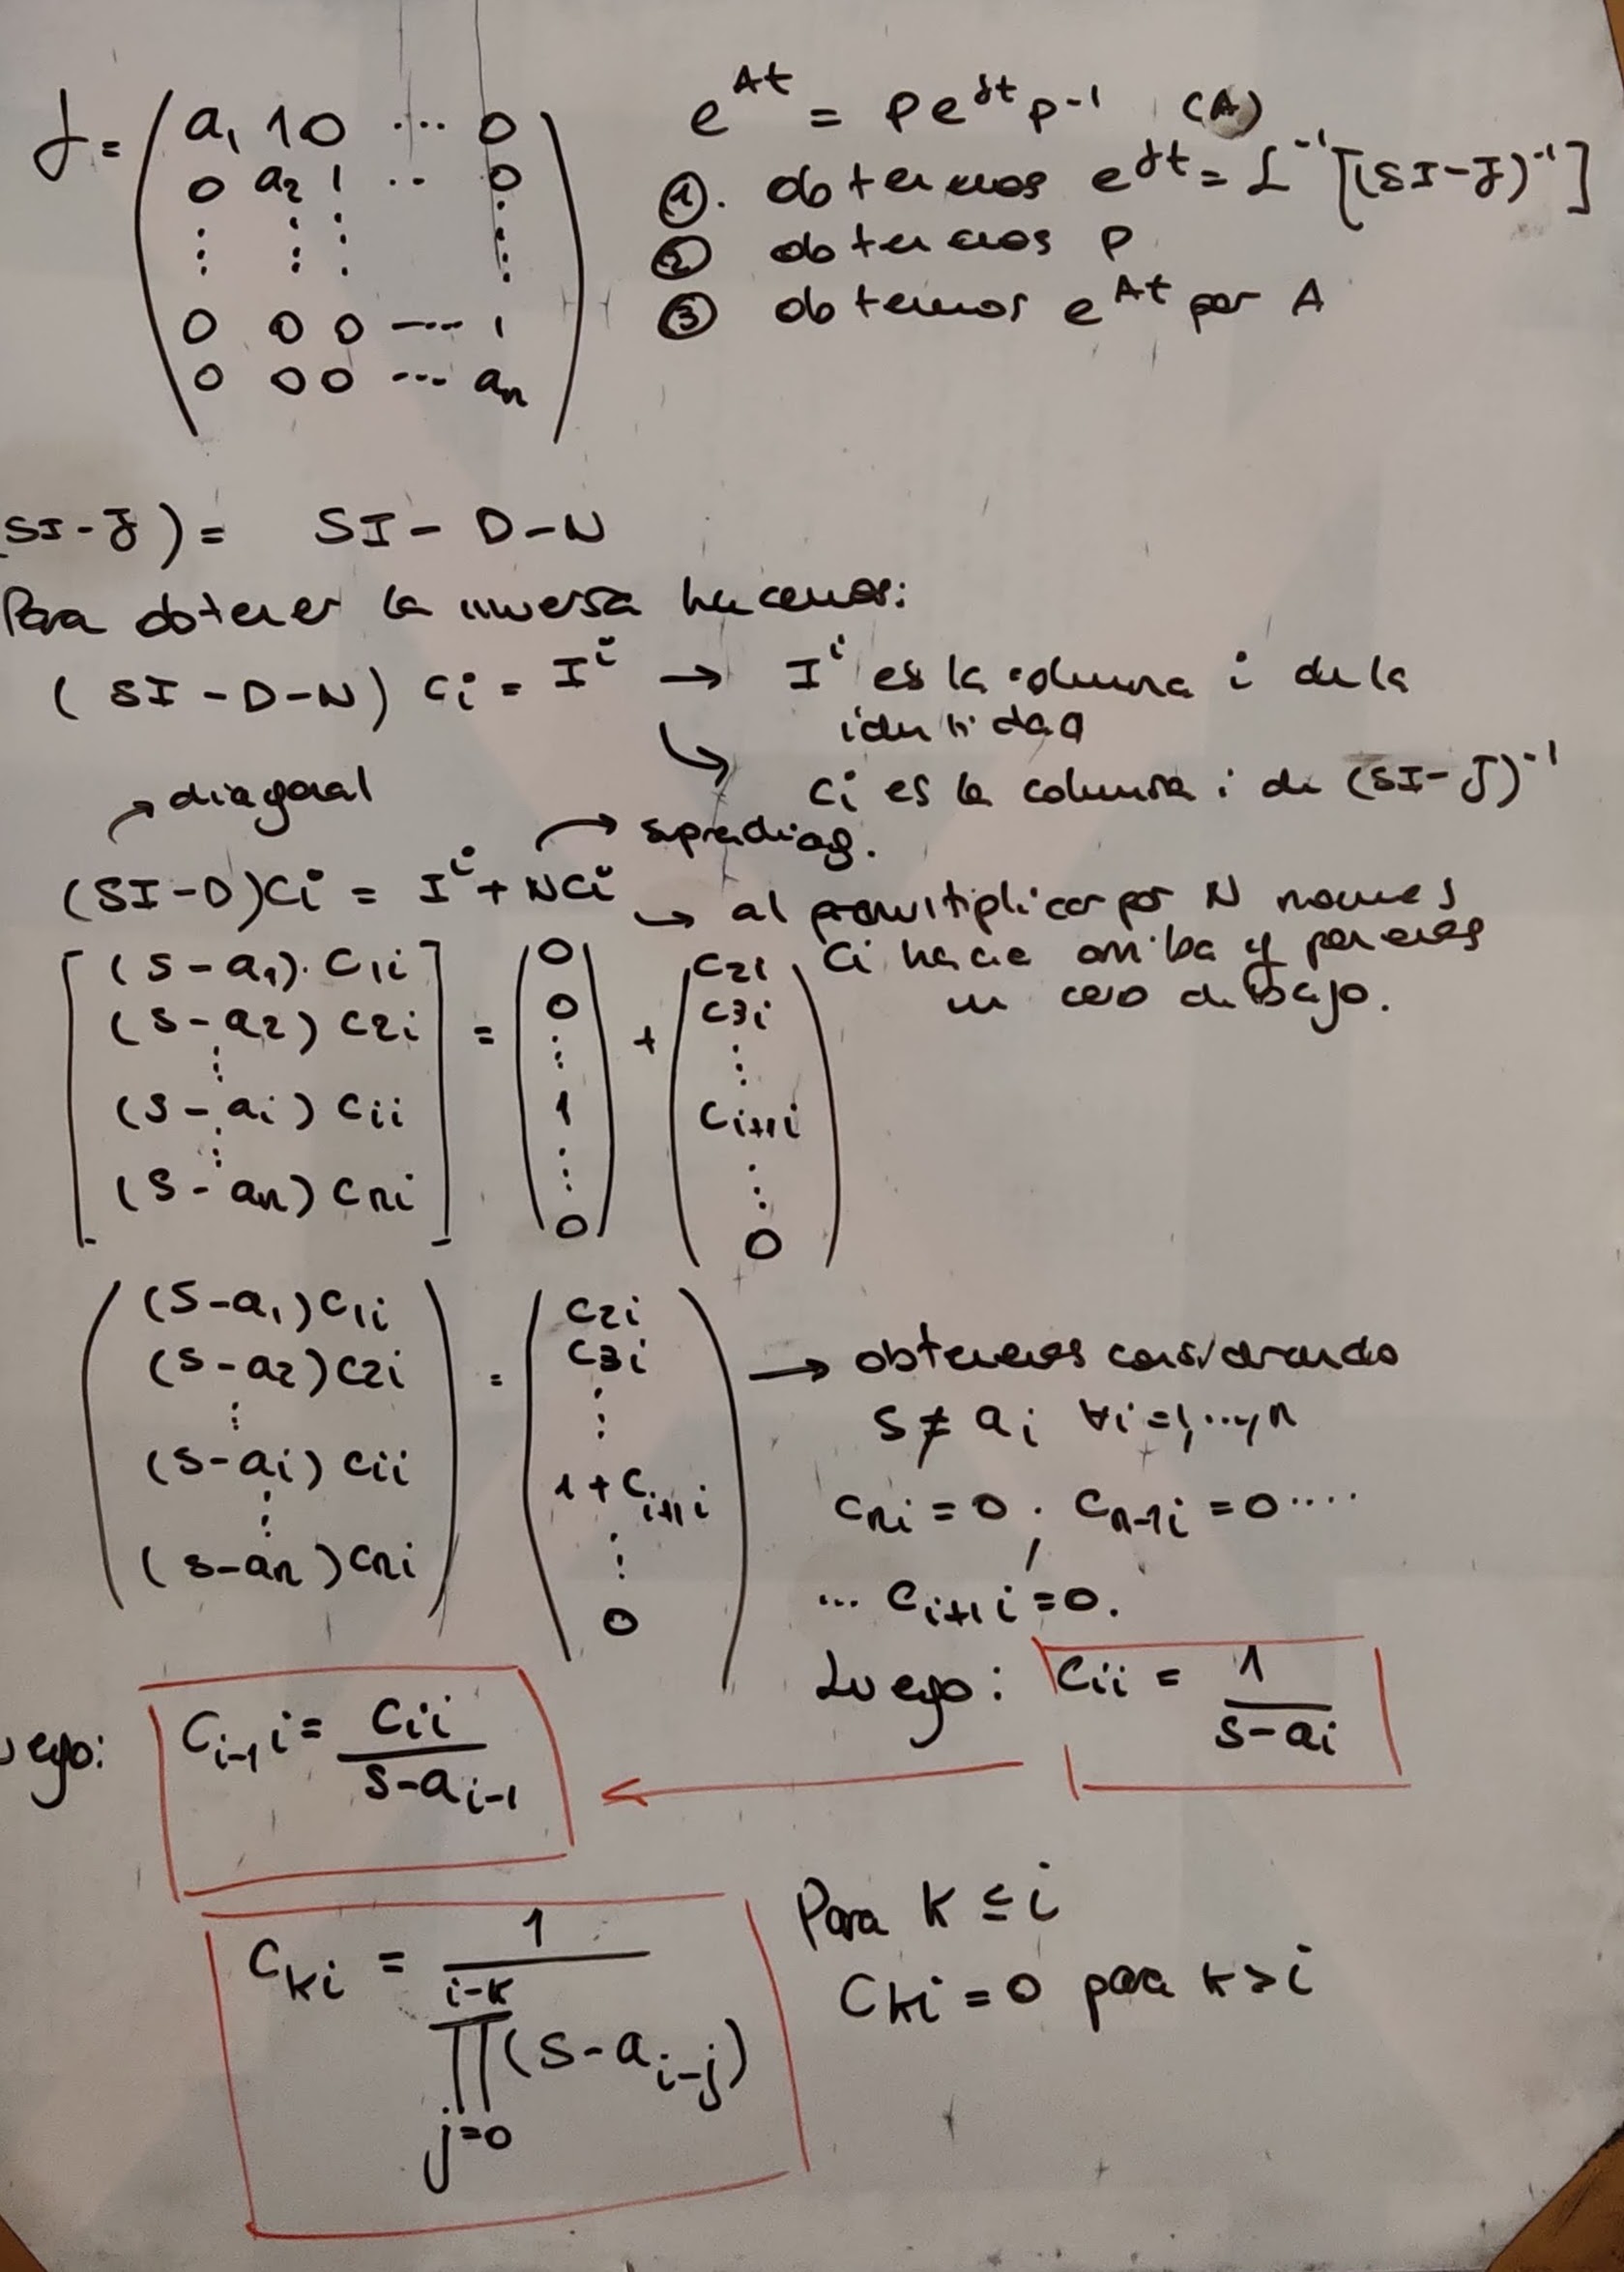 J = ( a₁ 1 0 ... 0
0 a₂ 1 .. 0
⋮ ⋮ ⋮ ⋮
0 0 0 ---- 1
0 0 0 ... aₙ )
e^{At} = P e^{Jt} P⁻¹ (A)
①. obtenemos e^{Jt} = L⁻¹[(SI-J)⁻¹]
② obtenemos P
③ obtemos e^{At} por A
(SI-J) = SI - D - N
Para obtener la inversa hacemos:
(SI - D - N) Ci = I^i → I^i es la columna i de la
identidad
↳ Ci es la columna i de (SI-J)⁻¹
→ diagonal
→ supradiag.
(SI-D)Ci = I^i + NCi ↳ al premultiplicar por N movemos
Ci hacia arriba y ponemos
un cero debajo.
[ (s-a₁)·C1i
(s-a₂) C2i
⋮
(s-ai) Cii
⋮
(s-an) Cni ] = ( 0
0
⋮
1
⋮
0 ) + ( C2i
C3i
⋮
Ci+1i
⋮
0 )
( (s-a₁)C1i
(s-a₂)C2i
⋮
(s-ai) Cii
⋮
(s-an)Cni ) = ( C2i
C3i
⋮
1 + Ci+1i
⋮
0 )
→ obtenemos considerando
s ≠ ai ∀i=1,..,n
Cni = 0 ; Cn-1i = 0 ....
... Ci+1i = 0.
Luego: Cii = 1/(s-ai)
uego: Ci-1i = Cii/(s-ai-1)
Cki = 1/∏_{j=0}^{i-k}(s-a_{i-j})
Para k ≤ i
Cki = 0 para k > i